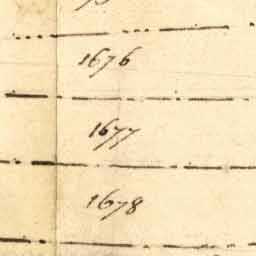 1676
1677
1678